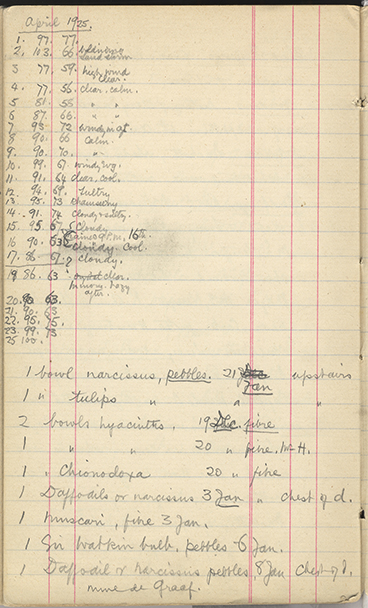 April 1925.
1. 97. 77.
2. 103. 66
3 77. 59. high wind
clear.
4. 77. 56. clear. calm.
5 81. 55 " "
6 87. 66. " "
7 93 72 windy
8 90. 66 calm.
9. 90. 70. "
10. 99. 67. windy
11. 91. 64 clear. cool.
12. 94. 69. Sultry
13. 95. 73
14. 91. 74 cloudy & sultry.
15. 95. 67 cloudy
rained 9 P.M. 16th.
16 90. 63 cloudy. cool.
17. 86 67 cloudy.
18 86. 63 clear.
after.
20. 63.
21. 90.
22. 95. 75.
23. 99. 73
25 100.
1 bowl narcissus, pebbles. 21 Jan upstairs
1 " tulips " " "
2 bowls hyacinths. 19 Dec. fibre
1 " " 20 " fibre. Mr H.
1 " Chionodoxa 20 " fibre
1 Daffodils or narcissus 3 Jan " chest of d.
1 muscari, fibre 3 Jan.
1 Sir Watkin bulb. pebbles 6 Jan.
1 Daffodil or narcissus pebbles, 8 Jan chest of d.
mme de Graaf.